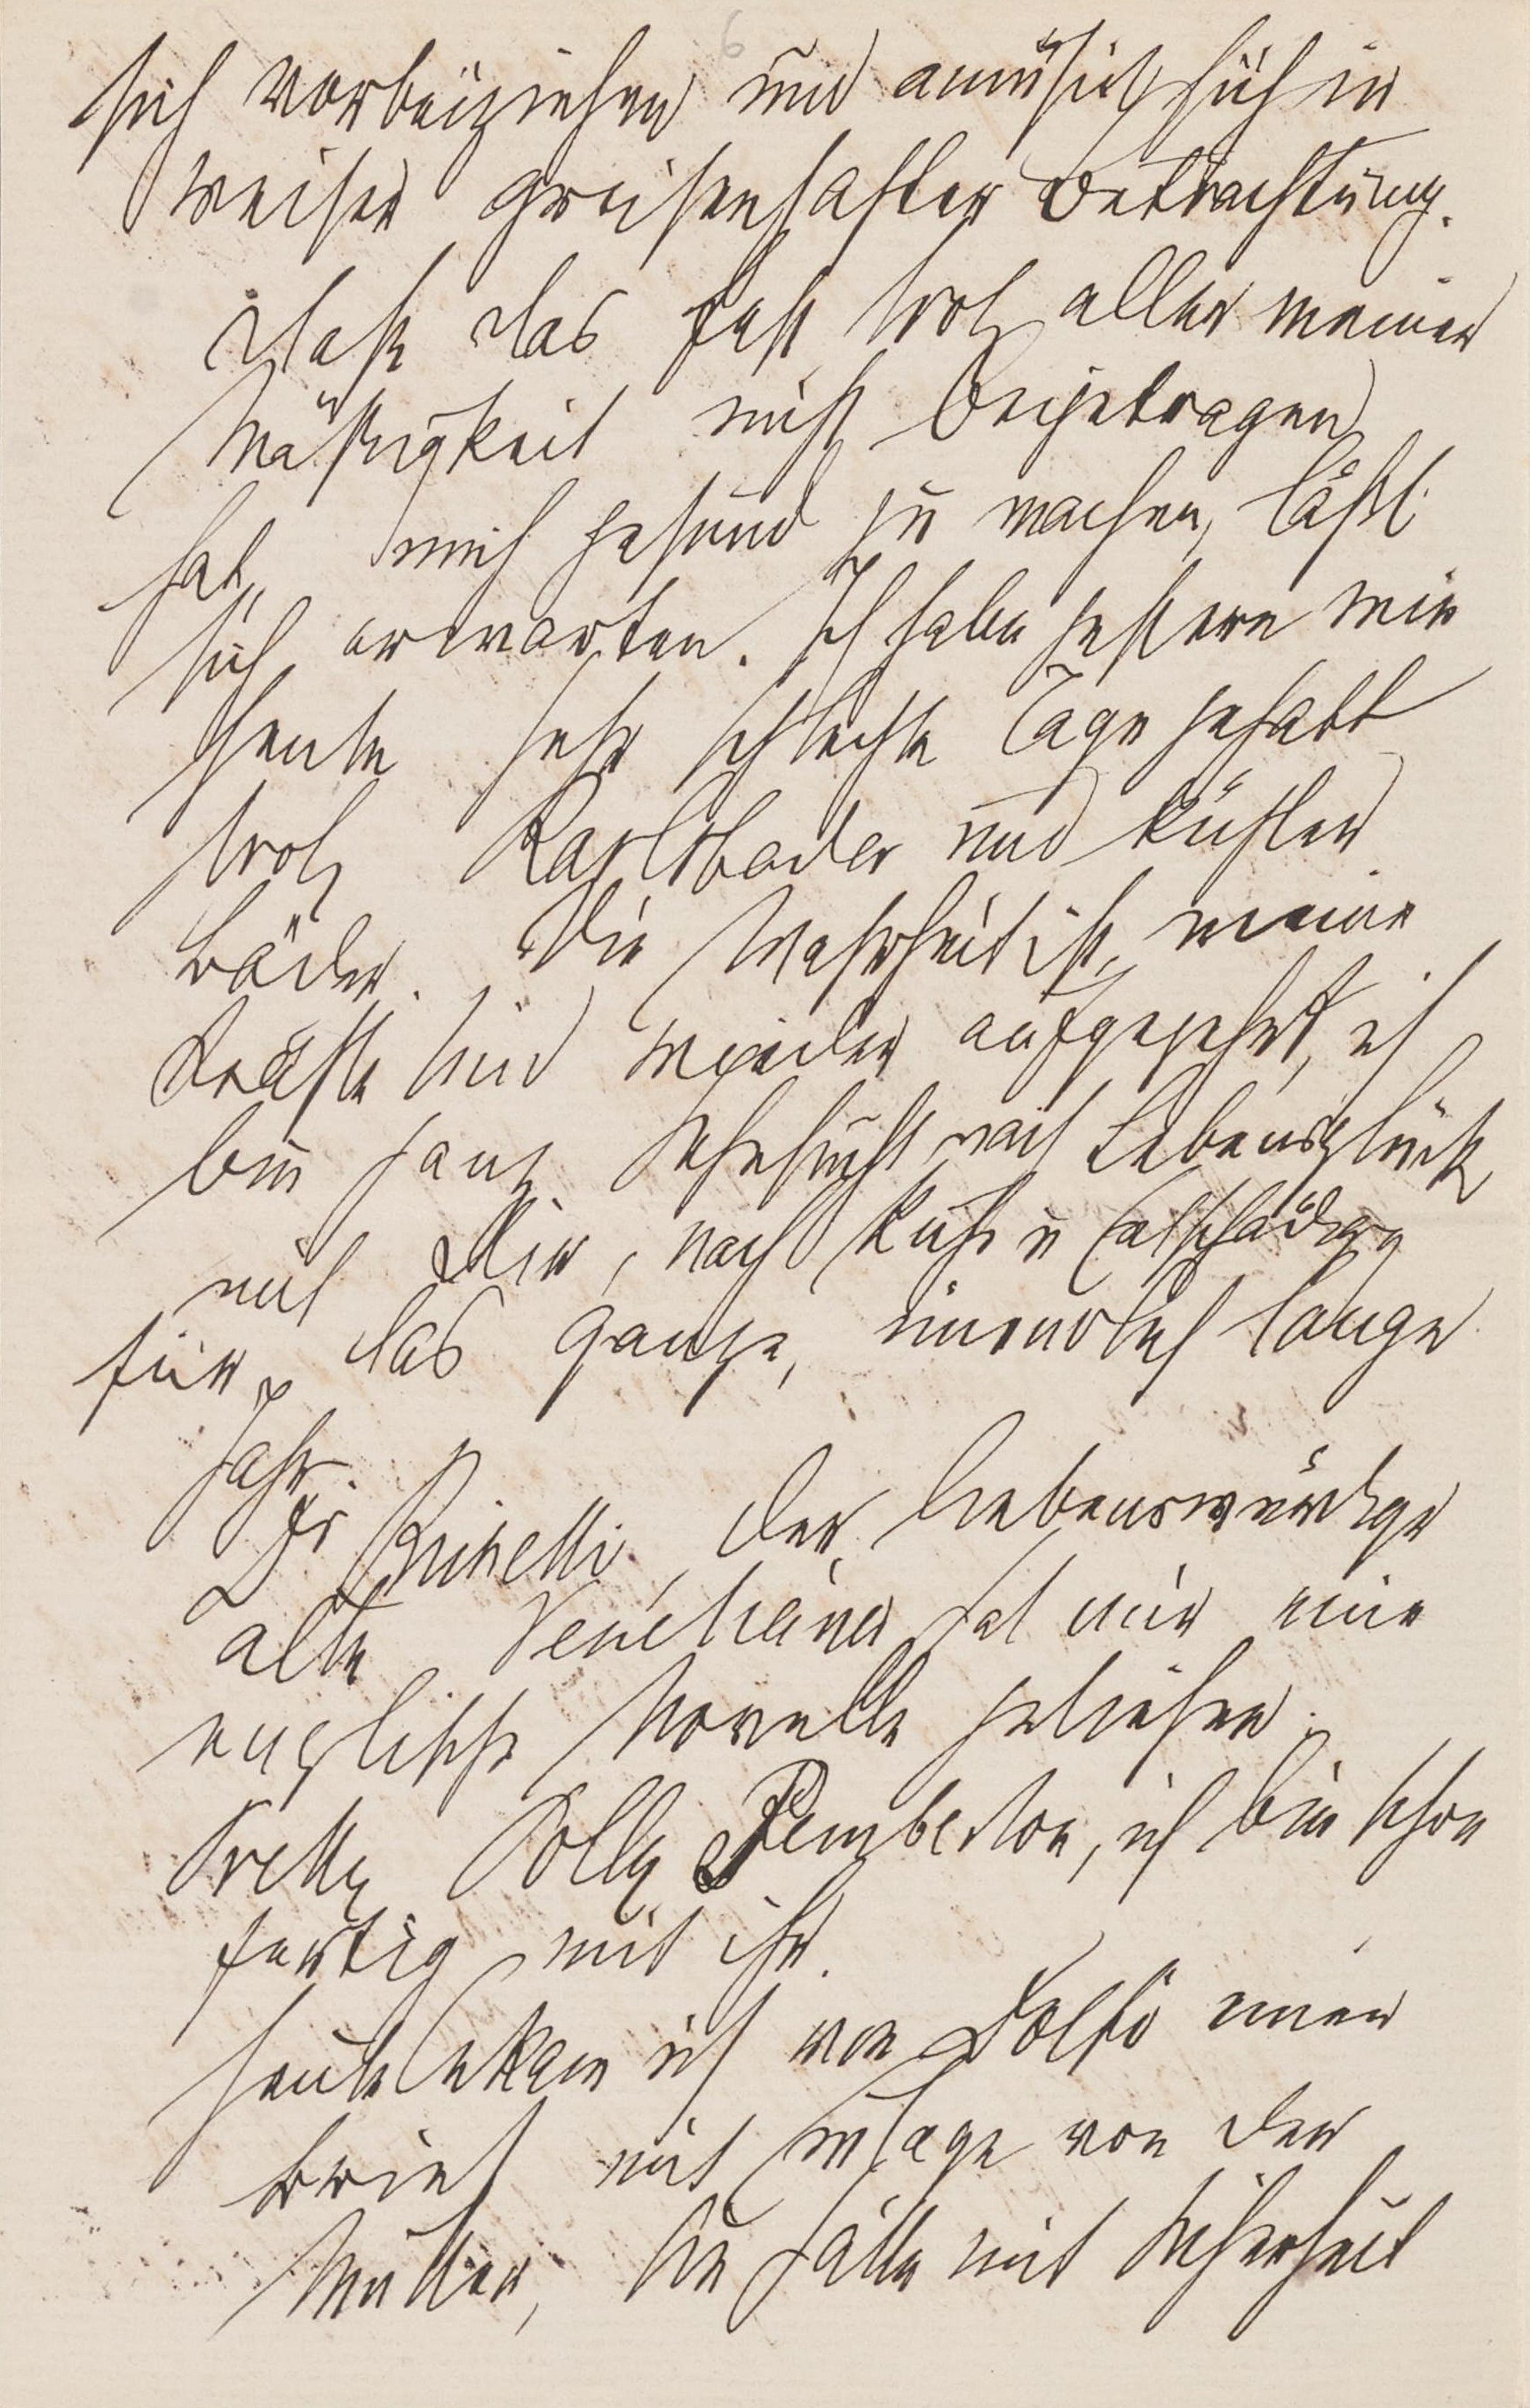 6
sich vorbeiziehen und amüsirt sich in
weiser greisenhafter Betrachtung.
Daß das Fest trotz aller meiner
Mäßigkeit nicht beigetragen
hat, mich gesund zu machen, läßt
sich erwarten. Ich habe gestern wie
heute sehr schlechte Tage gehabt
trotz Karlsbader und kühler
Bäder. Die Wahrheit ist, meine
Kräfte sind wieder aufgezehrt, ich
bin ganz Sehnsucht nach Lebensglück
mit Dir, nach Ruhe u Entschädigg
für das ganze, unendlich lange
Jahr.
Dr Ricchetti, der liebenswürdige
alte Venetianer hat mir eine
englische Novelle geliehen:
Pretty Polly Pemberton, ich bin schon
fertig mit ihr.
Heute bekam ich von Dolfi einen
Brief mit Einlage von der
Mutter, sie hätte mit Sicherheit